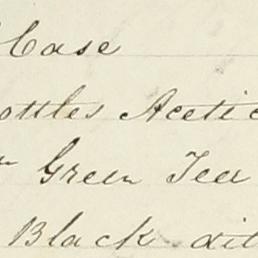 Case
ottles Acetic
Green Tea
Black dit